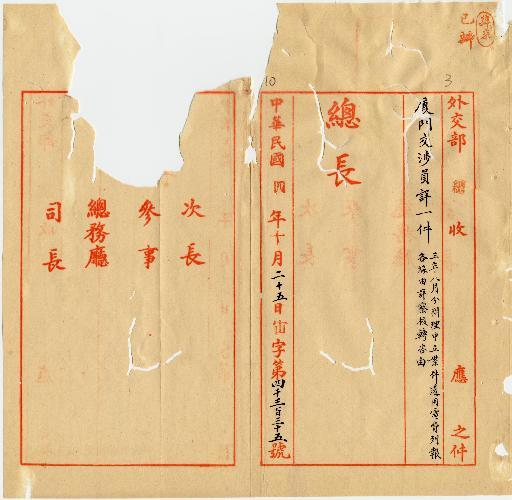 已辦
3
10
外交部 總 收 應 之件
廈門交涉員詳一件
三年八月分辦理中立業件適用電費列報
各緣由詳祭核轉咨由
總長
中華民國四年十月二十五日 字第四千三百三十五號
次長
參事
總務廳
司長